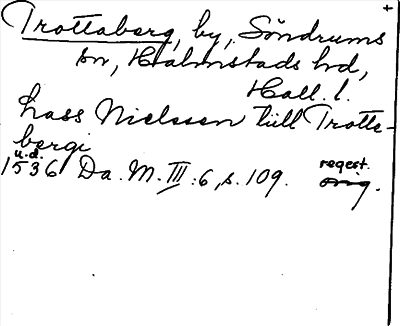 +
Trottaberg, by, Söndrums
sn, Halmstads hd,
Hall. l.
Lass Nielssen tüll Trotte-
bergi
u.d.
1536 Da. M. III:6, s. 109. regest.
orig.